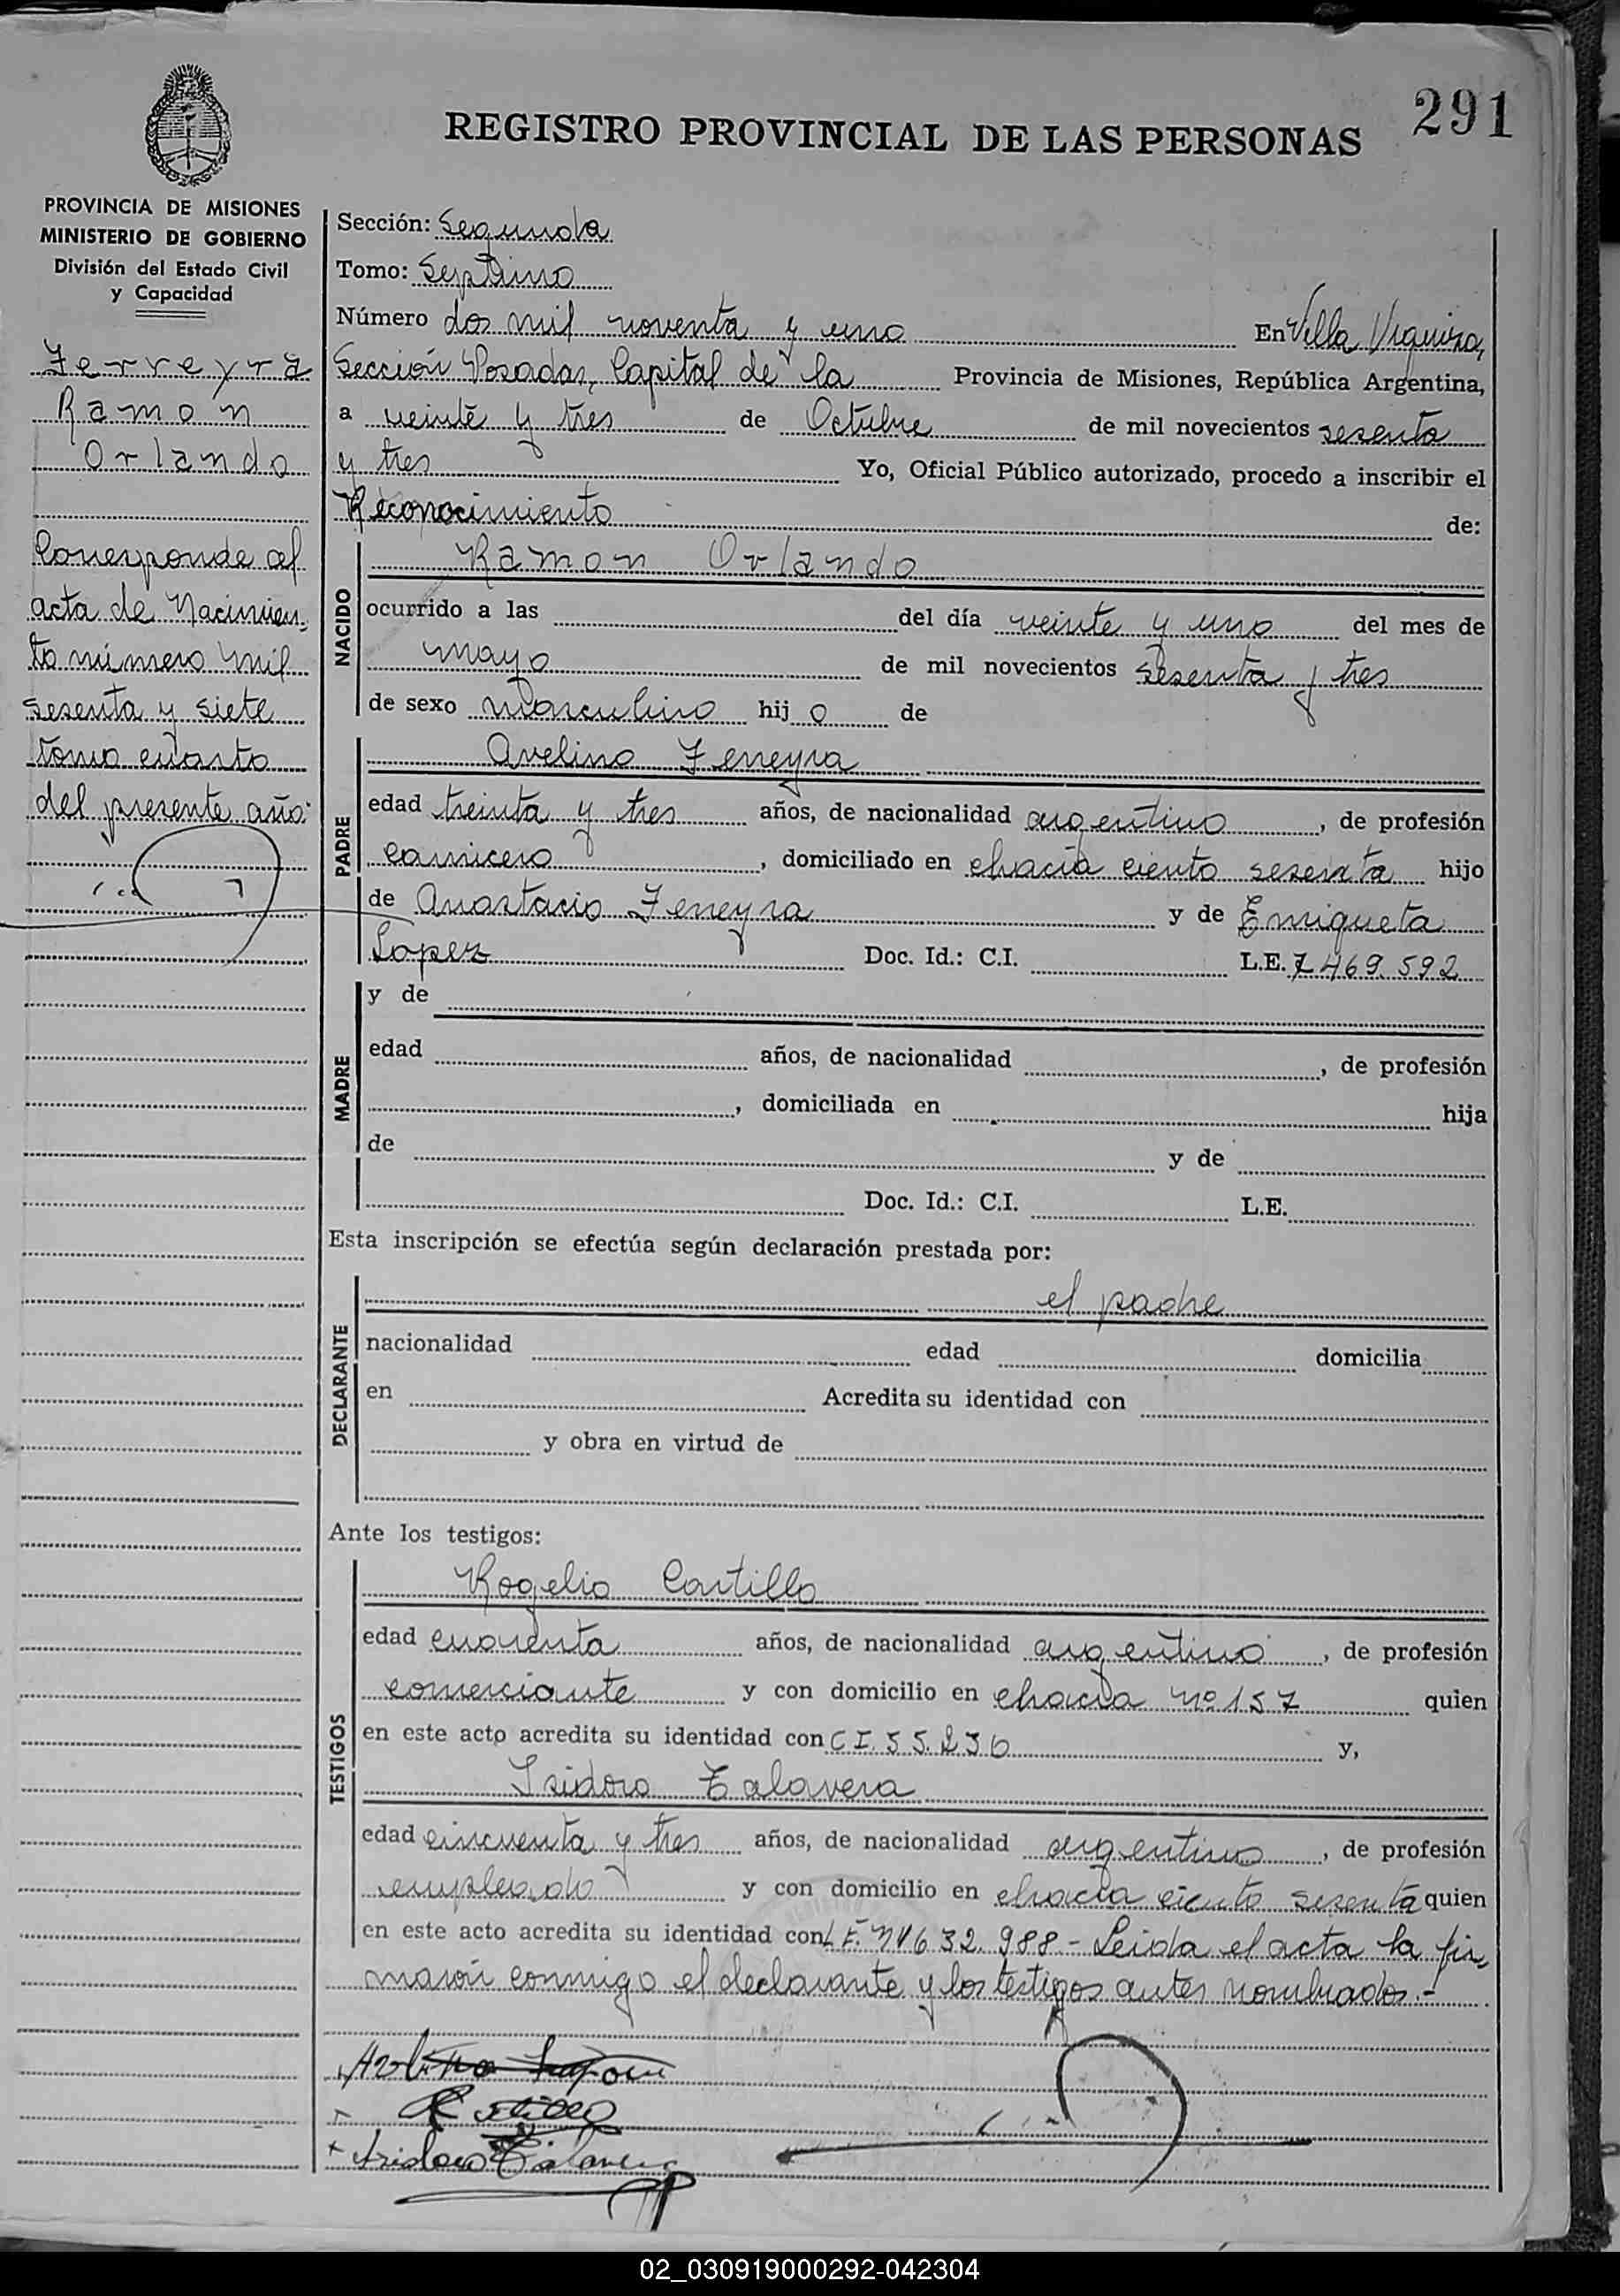 291
REGISTRO PROVINCIAL DE LAS PERSONAS
PROVINCIA DE MISIONES
MINISTERIO DE GOBIERNO
División del Estado Civil
y Capacidad
Ferreyra
Ramon
Orlando
Corresponde al
acta de Nacimien-
to número mil
sesenta y siete
tomo cuarto
del presente año.
Sección: Segunda
Tomo: Septimo
Número dos mil noventa y uno En Villa Urquiza,
Sección Posadas, Capital de la Provincia de Misiones, República Argentina,
a veinte y tres de Octubre de mil novecientos sesenta
y tres Yo, Oficial Público autorizado, procedo a inscribir el
Reconocimiento de:
NACIDO
Ramon Orlando
ocurrido a las del día veinte y uno del mes de
mayo de mil novecientos sesenta y tres
de sexo masculino hijo de
PADRE
Avelino Ferreyra
edad treinta y tres años, de nacionalidad argentino, de profesión
carnicero, domiciliado en chacra ciento sesenta hijo
de Anastacio Ferreyra y de Enriqueta
Lopez Doc. Id.: C.I. L.E. 7.469.592
MADRE
y de
edad años, de nacionalidad , de profesión
, domiciliada en hija
de y de
Doc. Id.: C.I. L.E.
Esta inscripción se efectúa según declaración prestada por:
DECLARANTE
el padre
nacionalidad edad domicilia
en Acredita su identidad con
y obra en virtud de
Ante los testigos:
TESTIGOS
Rogelio Castillo
edad cuarenta años, de nacionalidad argentino, de profesión
comerciante y con domicilio en chacra nº 157 quien
en este acto acredita su identidad con C I. 55.236 y,
Isidoro Talavera
edad cincuenta y tres años, de nacionalidad argentino, de profesión
empleado y con domicilio en chacra ciento sesenta quien
en este acto acredita su identidad con L E. 632.988 - Leida el acta la fir-
maron conmigo el declarante y los testigos antes nombrados.-
Isidoro Talavera
02_030919000292-042304